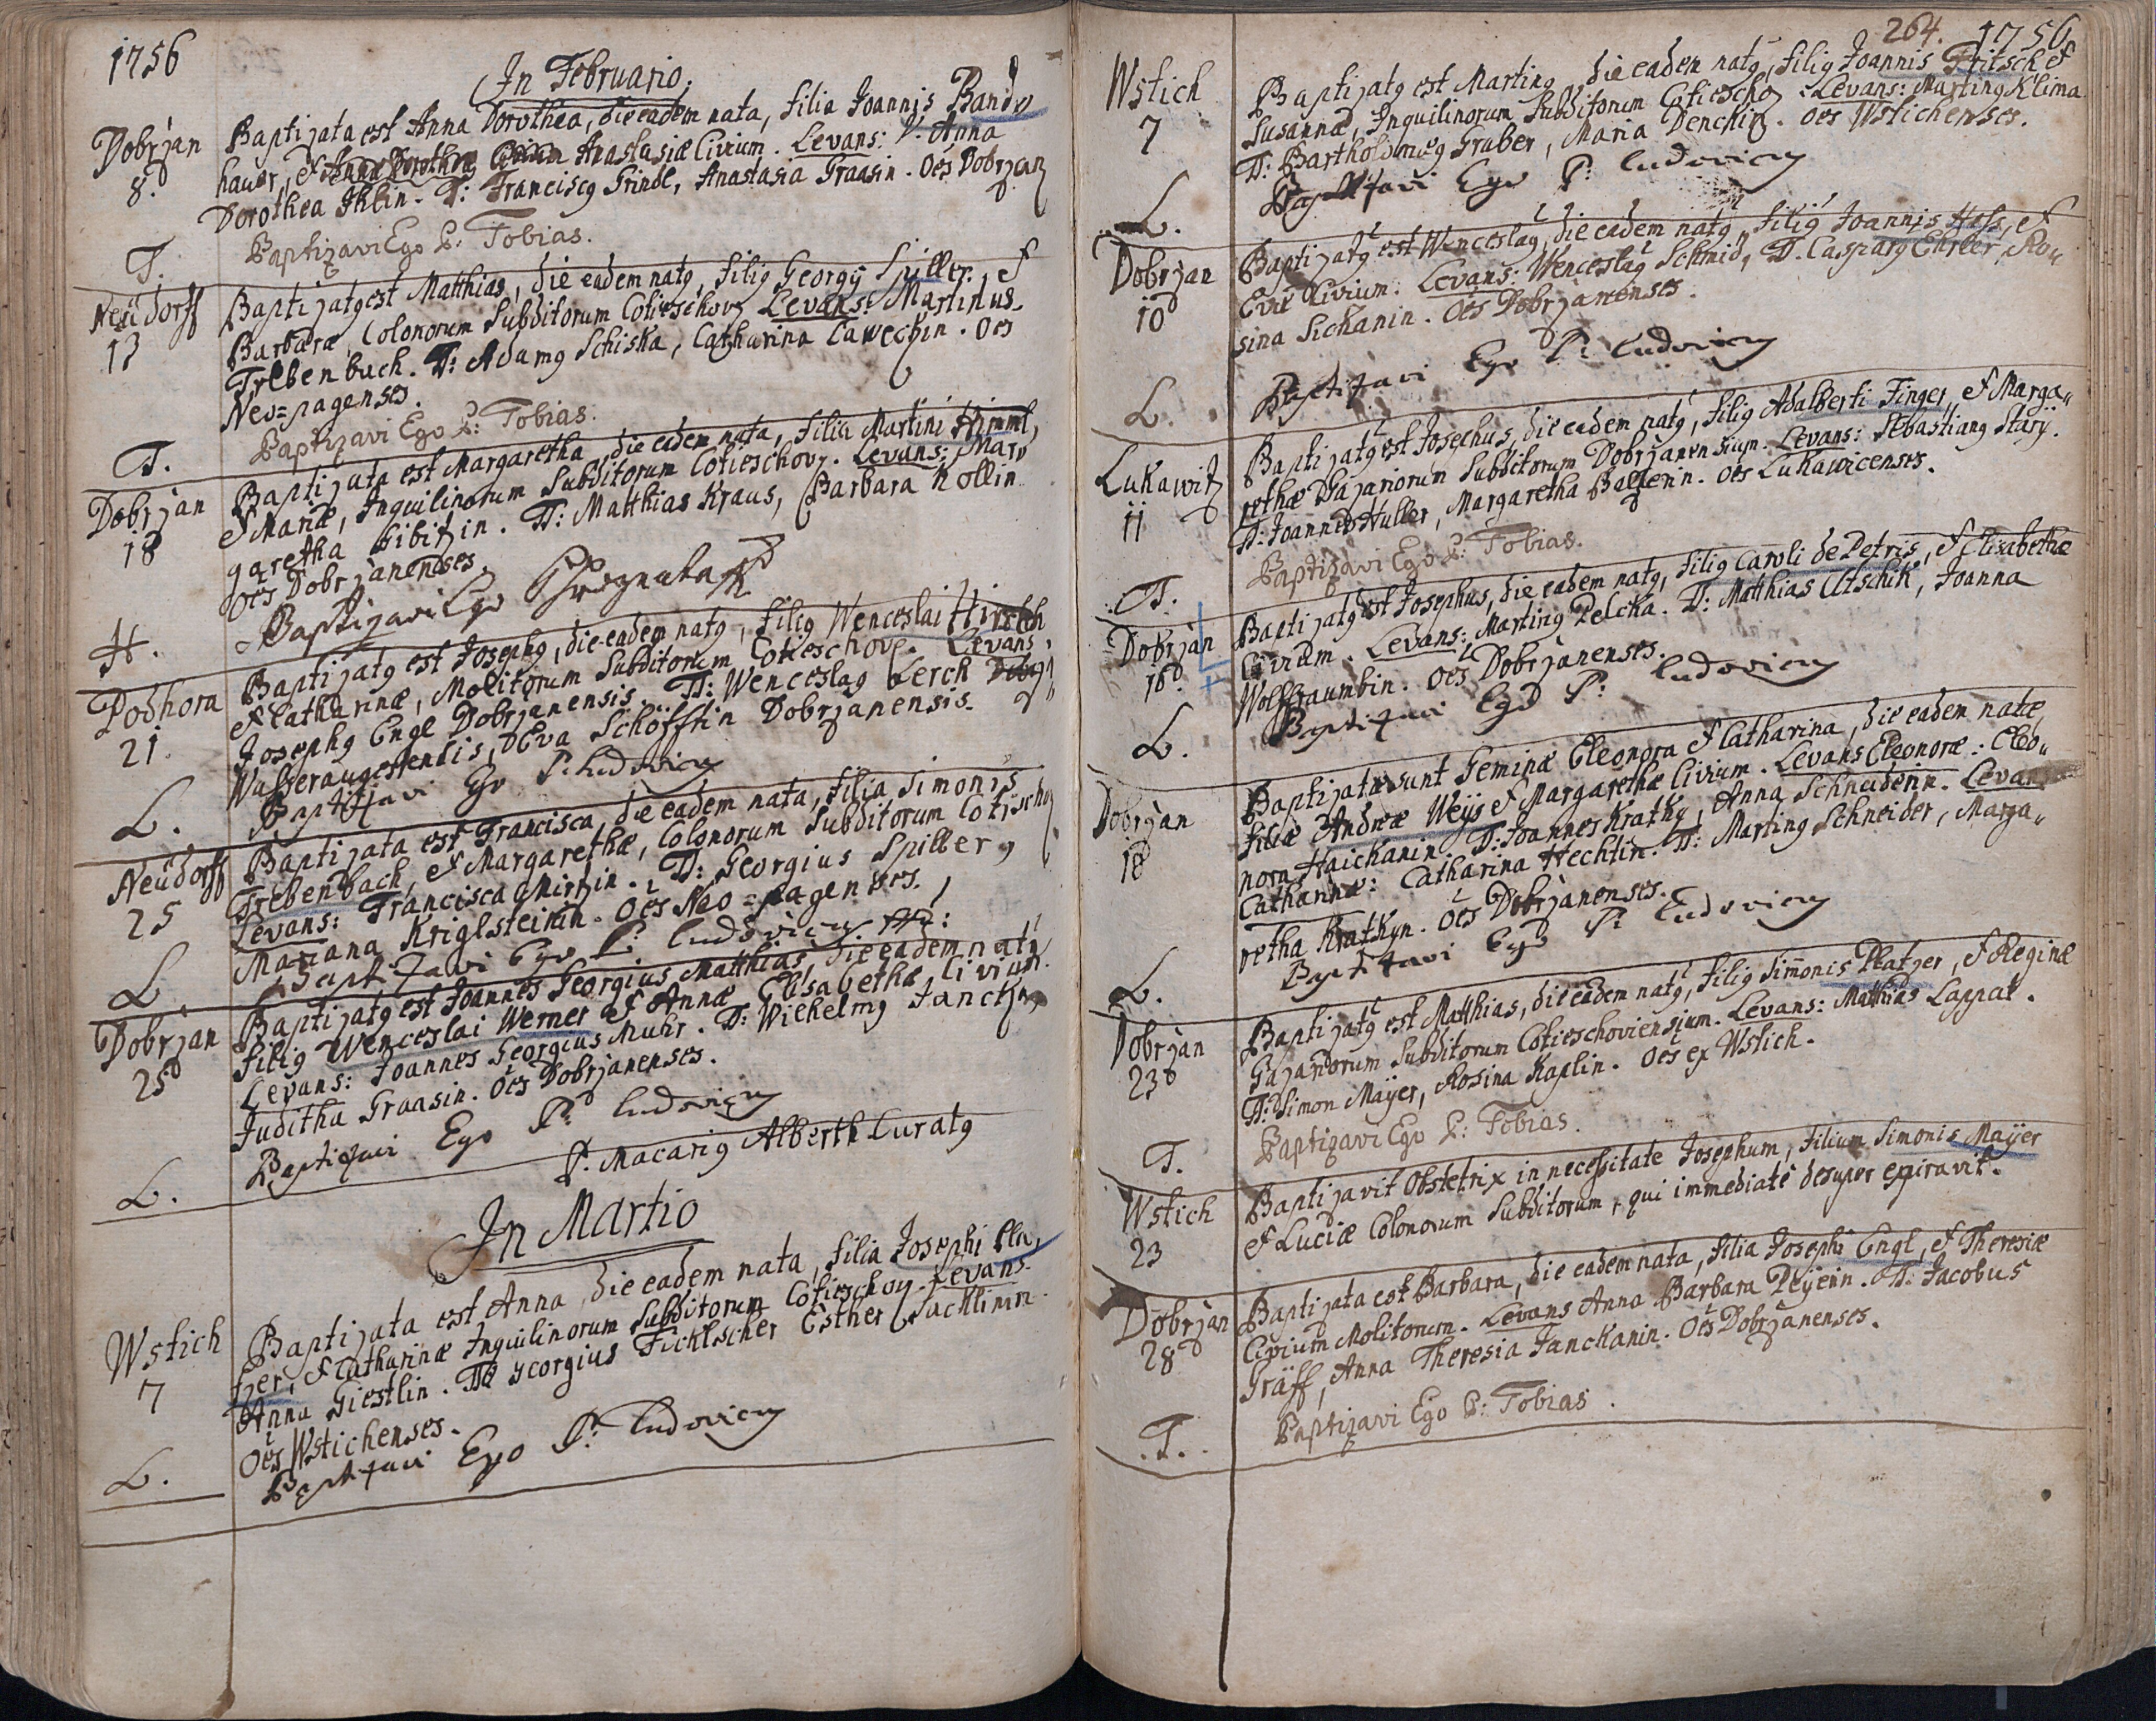 1756
In Februario.
Dobrzan
8.
Baptizata est Anna Dorothea, die eadem nata, filia Joannis Band„
hauer, et Anastasiæ Civium. Levans: V. Anna
Dorothea Ihlin. T: Franciscg Grindl, Anastasia Graasin. Oes Dobrzan
Baptizavi Ego P: Tobias.
T.
Neüdorff
13
Baptizatg est Matthias, die eadem natg, filig Georgÿ Spiller, et
Barbaræ, Colonorum Subditorum Cotieschov. Levans: Martinus
Trebenbach. T: Adamg Schiska, Catharina Cawechin. Oes
Neo=pagenses.
Baptizavi Ego P: Tobias.
T.
Dobrzan
18
Baptizata est Margaretha, die eadem nata, filia Martini Himml,
et Mariæ, Inquilinorum Subditorum Cotieschov. Levans: Mar„
garetha Sibitzin. T: Matthias Kraus, Barbara Kollin
Oes Dobrzanenses.
Baptizavi Ego
H.
Podhora
21.
Baptizatg est Josephg, die eadem natg, filig Wenceslai Hirsch
et Catharinæ, Molitorum Subditorum Cotieschov. Levans:
Josephg Engl Dobrzanensis. T: Wenceslag Lerch
Wasseraugestensis, Eva Schöfftin Dobrzanensis.
Baptizavi Ego P. Ludovicg
L.
Neüdorff
25
Baptizata est Francisca, die eadem nata, filia Simonis
Trebenbach, et Margarethæ, Colonorum Subditorum Cotischov
Levans: Francisca Mirtzin. T: Georgius Spiller,
Mariana Kriglsteinin. Oes Neo=pagenses.
Baptizavi Ego P: Ludovicg
L.
Dobrzan
25
Baptizatg est Joannes Georgius Matthias, die eadem natg
filig Wenceslai Werner et Annæ Elisabethæ, Civium.
Levans: Joannes Georgius Muhr. T: Wilhelmg Janckg,
Juditha Graasin. Oes Dobrzanenses.
Baptizavi Ego P: Ludovicg
L.
P. Macarig Alberth Curatg
In Martio
Wstich
7
Baptizata est Anna, die eadem nata, filia Josephi Pla„
tzer, et Catharinæ Inquilinorum Subditorum Cotieschov. Levans:
Anna Giestlin. T: Georgius Ficktscher Esther Sacklinin.
Oes Wstichenses.
Baptizavi Ego P: Ludovicg
L.
264. 1756
Wstich
7
Baptizatg est Marting, die eadem natg, filig Joannis Fritsch et
Susannæ, Inquilinorum Subditorum Cotieschov. Levans: Marting Klima
T: Bartholomæg Gruber, Maria Denchin. Oes Wstichenses.
Baptizavi Ego P: Ludovicg
L.
Dobrzan
10
Baptizatg est Wenceslag, die eadem natg, filig Joannis Hess, et
Evæ Civium. Levans: Wenceslag Schmid, T. Casparg Ehrler, Ro„
sina Sichanin. Oes Dobrzanenses.
Baptizavi Ego P: Ludovicg
L.
Lukawitz
11
Baptizatg est Josephus, die eadem natg, filig Adalberti Finger, et Marga„
rethæ Bazariorum Subditorum Dobrzanensium. Levans: Sebastiang Stary.
T: Joannes Huller, Margaretha Baltzenn. Oes Lukawicenses.
Baptizavi Ego P: Tobias.
T.
Dobrzan
16
Baptizatg est Josephus, die eadem natg, filig Caroli de Petris, et Elisabethæ
Civium. Levans: Marting Pelcka. T: Matthias Utschik, Joanna
Wolfframbin. Oes Dobrzanenses.
Baptizavi Ego P: Ludovicg
L.
Dobrzan
18
Baptizatæ sunt Geminæ Eleonora et Catharina, die eadem natæ,
filiæ Andreæ Weÿs et Margarethæ Civium. Levans Eleonoræ: Eleo„
nora Haickanin. T: Joannes Kratky, Anna Schneiderin. Levans
Catharinæ: Catharina Hechtin. T: Marting Schneider, Marga„
retha Kratkyn. Oes Dobrzanenses.
Baptizavi Ego P: Ludovicg
L.
Dobrzan
23
Baptizatg est Matthias, die eadem natg, filig Simonis Platzer, et Reginæ
Gazariorum Subditorum Cotieschoviensium. Levans: Matthias Lappat.
T: Simon Maÿer, Rosina Kaplin. Oes ex Wstich.
Baptizavi Ego P: Tobias.
T.
Wstich
23
Baptizavit Obstetrix in necessitate Josephum, filium Simonis Maÿer
et Luciæ Colonorum Subditorum, qui immediate desuper expiravit.
Dobrzan
28
Baptizata est Barbara, die eadem nata, filia Josephi Engl, et Theresiæ
Civium Molitorum. Levans Anna Barbara Peÿerin. T: Jacobus
Gräff, Anna Theresia Janckanin. Oes Dobrzanenses.
Baptizavi Ego P: Tobias.
T.